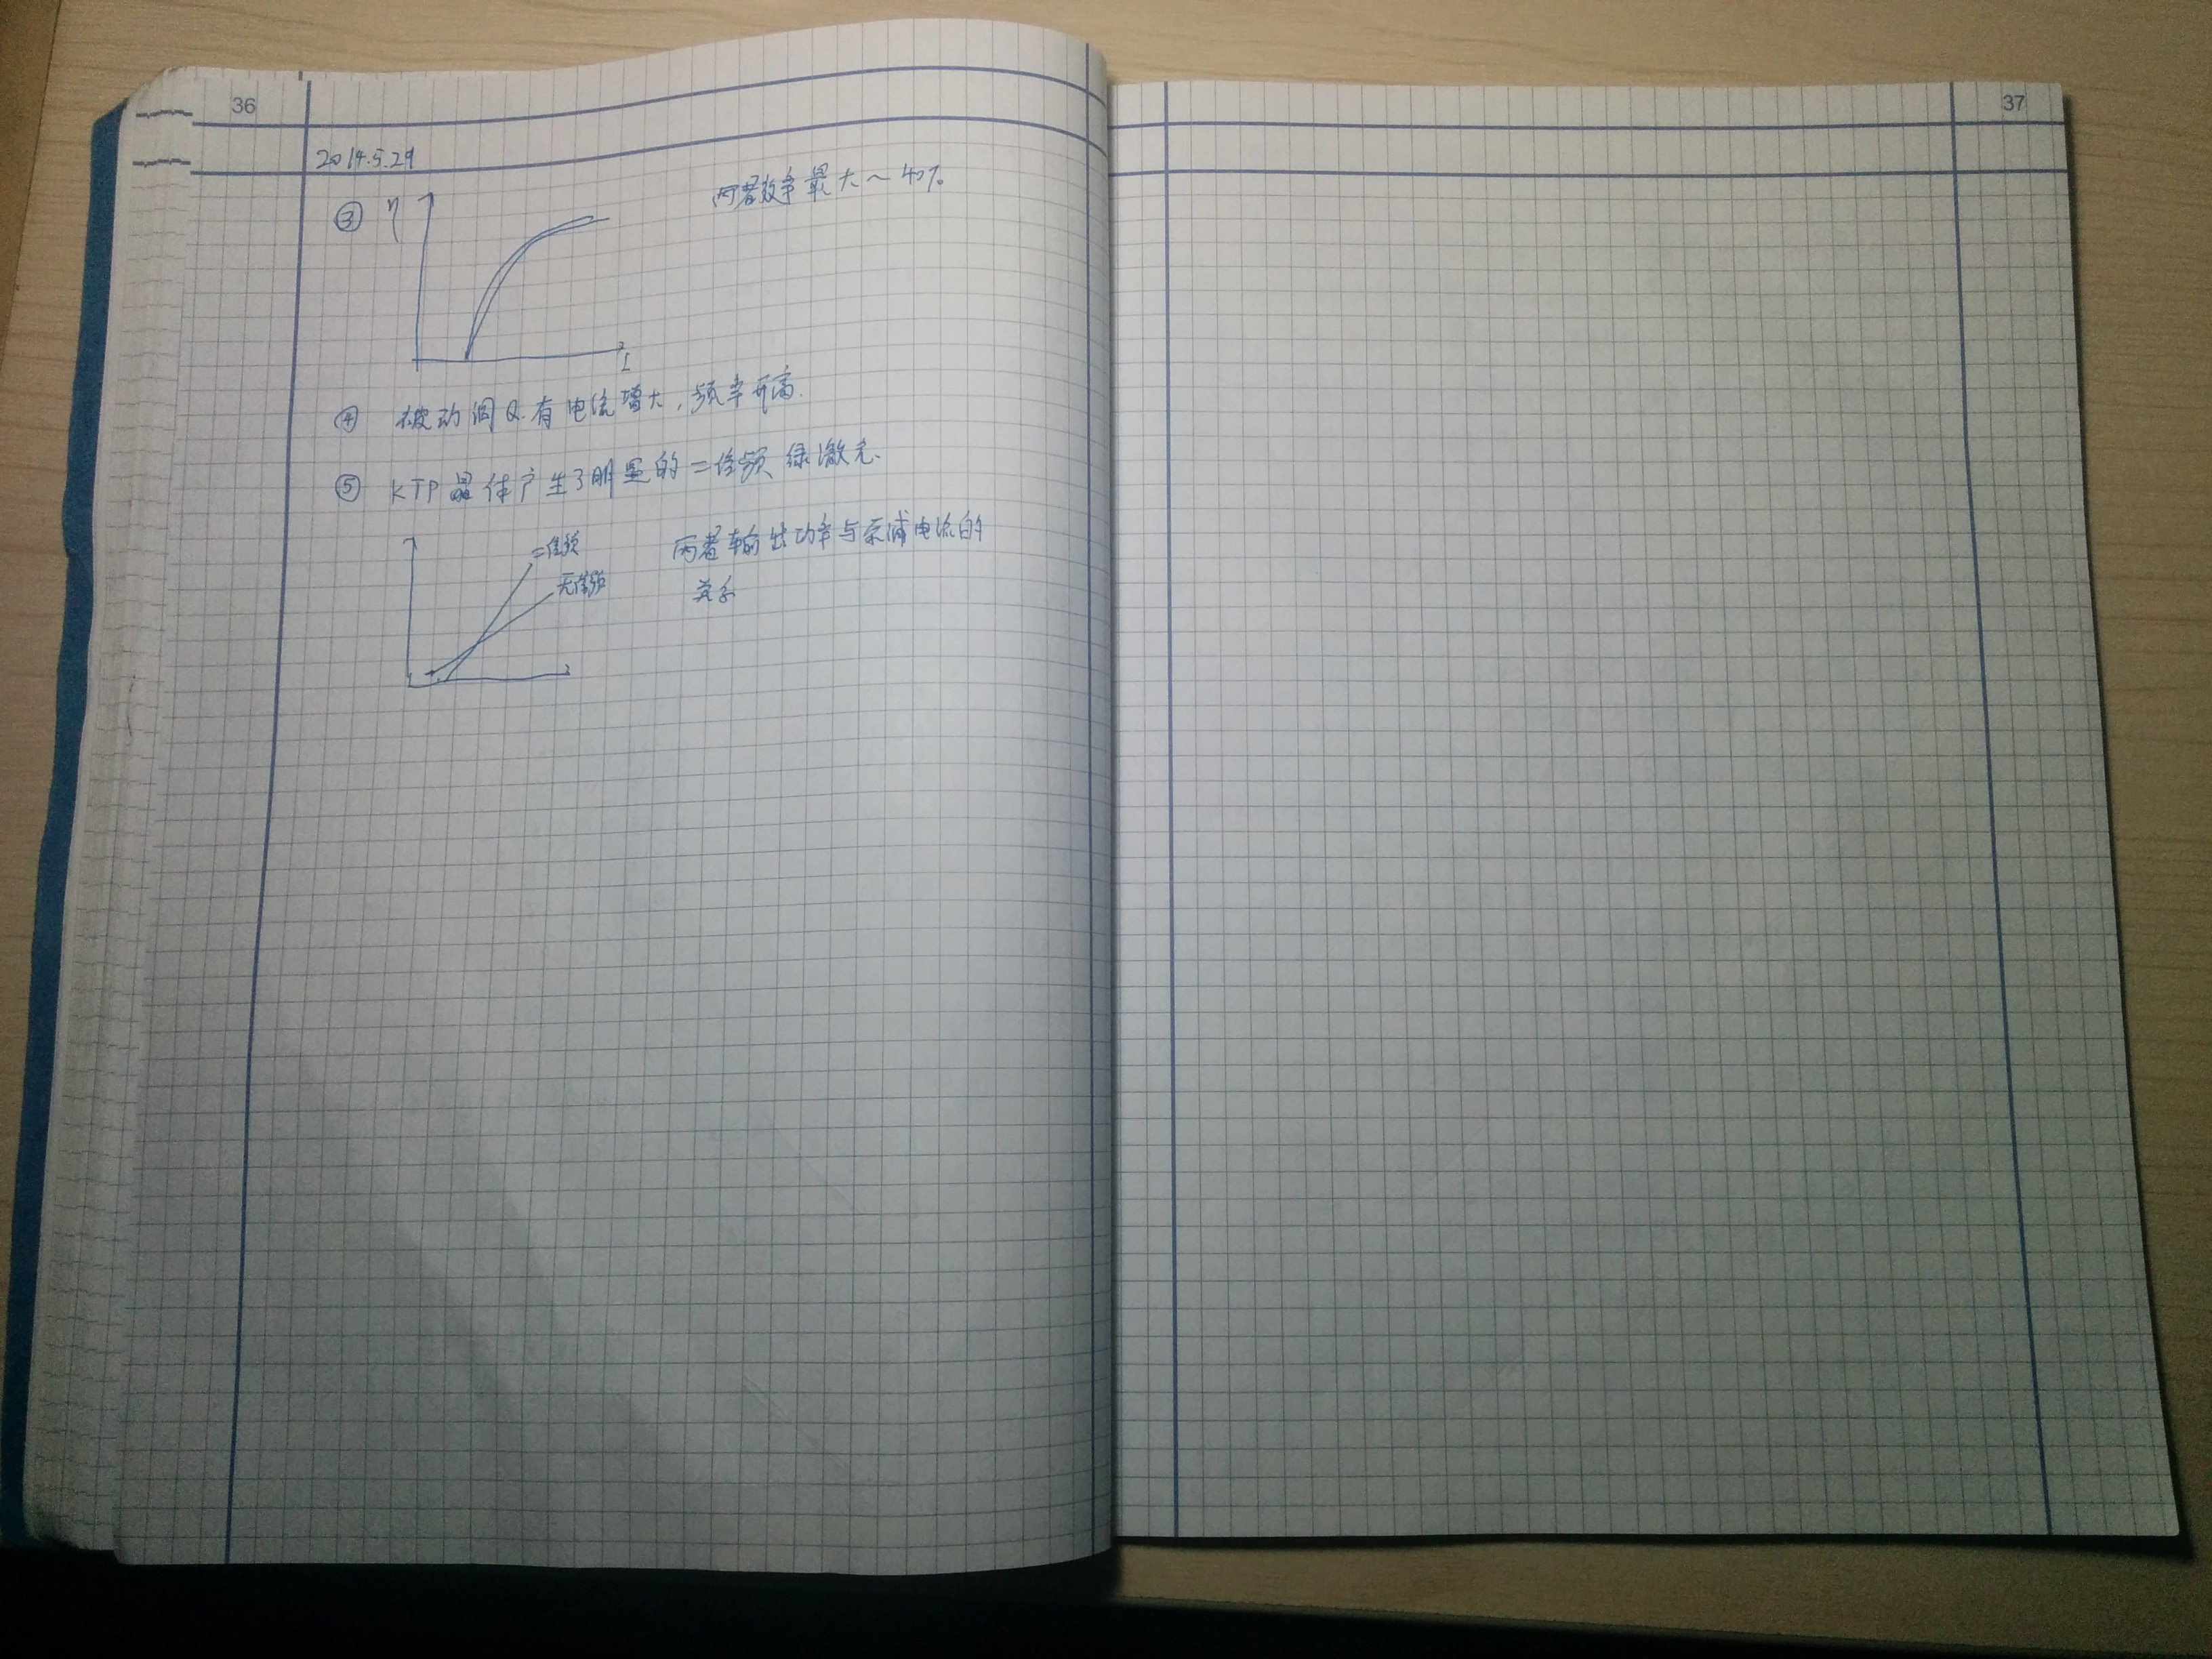 36
37
2014.5.29
③ η
两者效率最大~40%
I
④ 被动调Q.有电流增大,频率升高.
⑤ KTP晶体产生了明显的二倍频绿激光.
二倍频
无倍频
两者输出功率与泵浦电流的
关系